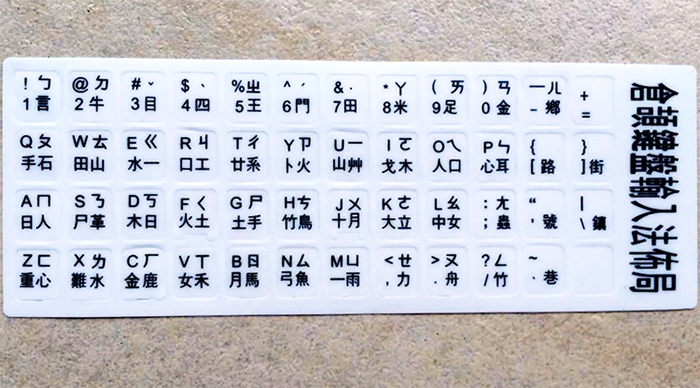 ! ㄅ @ ㄉ # ˇ $ ˋ %ㄓ ^ ˊ & ˙ * ㄚ ( ㄞ ) ㄢ —ㄦ +
1 言 2 牛 3 目 4 四 5 王 6 門 7 田 8 米 9 足 0 金 - 鄉 =
Qㄆ Wㄊ Eㄍ Rㄐ Tㄔ Yㄗ Uㄧ Iㄛ Oㄟ Pㄣ { }
手石 田山 水一 口工 廿系 卜火 山艸 戈木 人口 心耳 [ 路 ]街
Aㄇ Sㄋ Dㄎ Fㄑ Gㄕ Hㄘ Jㄨ Kㄜ Lㄠ :ㄤ “ |
日人 尸革 木日 火土 土手 竹鳥 十月 大立 中女 ;蟲 ‘ 號 \ 鎮
Zㄈ Xㄌ Cㄏ Vㄒ Bㄖ Nㄙ Mㄩ <ㄝ >ㄡ ?ㄥ ~
重心 難水 金鹿 女禾 月馬 弓魚 一雨 , 力 . 舟 / 竹 ` 巷
倉頡鍵盤輸入法佈局